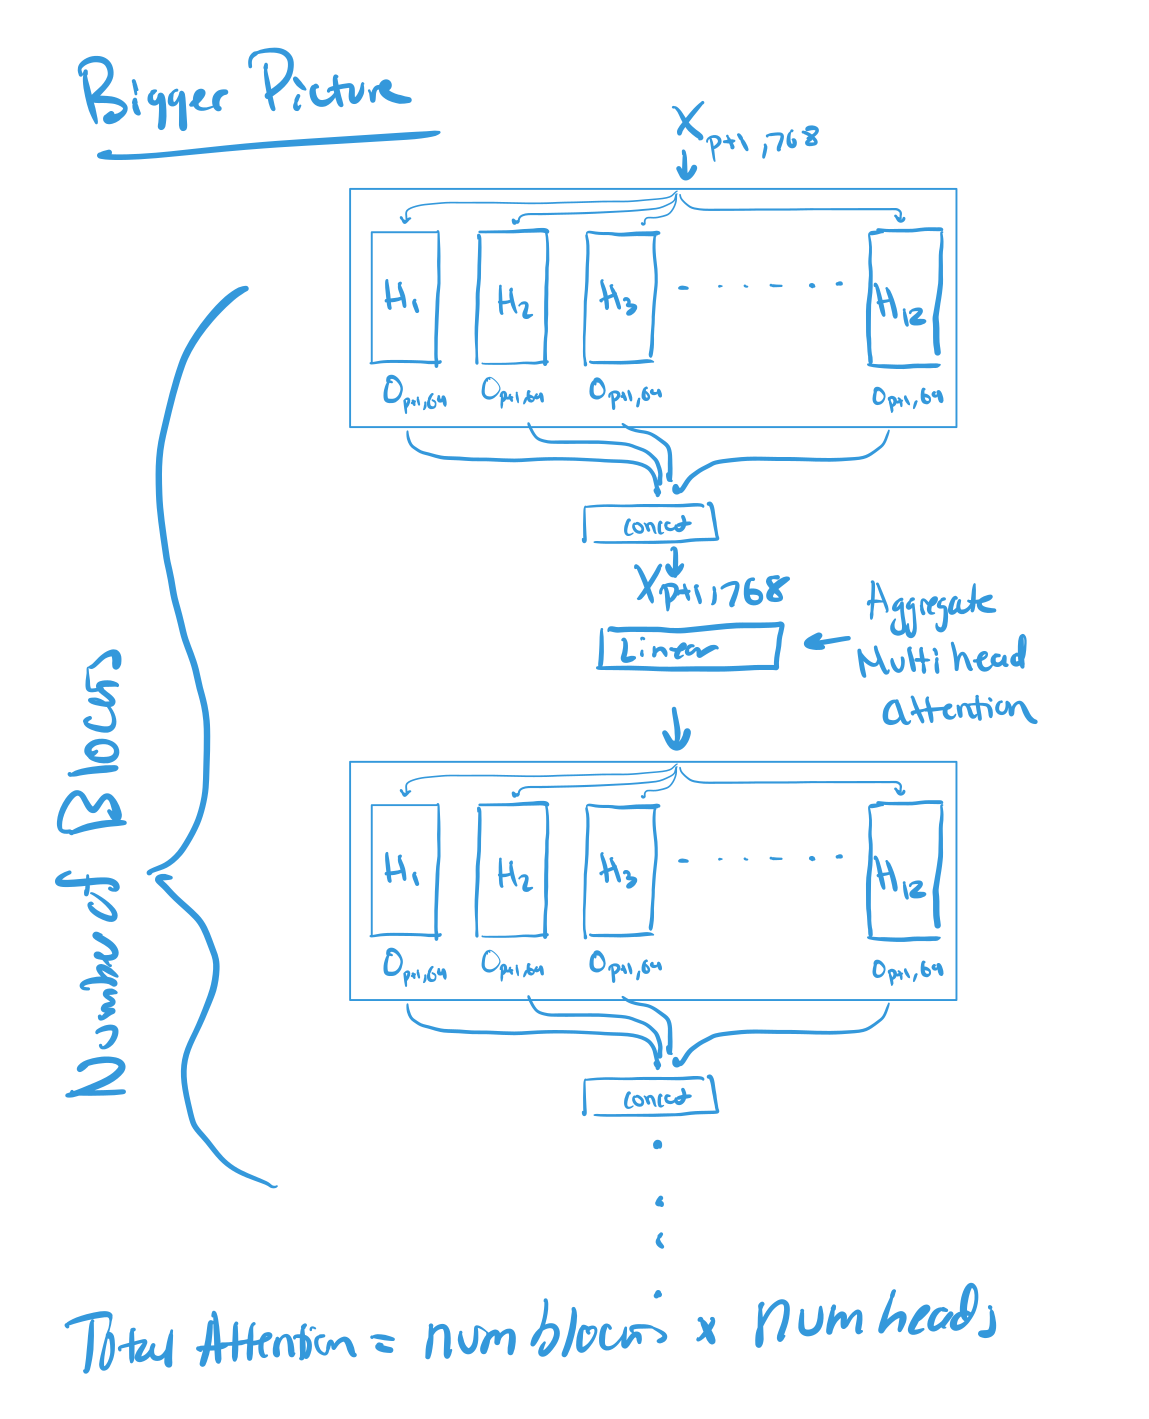 Bigger Picture
X p+1,768
H1 H2 H3 H12
O p+1,64 O p+1,64 O p+1,64 O p+1,64
concat
X p+1,768
Linear
Aggregate
Multi head
attention
Number of Blocks
H1 H2 H3 H12
O p+1,64 O p+1,64 O p+1,64 O p+1,64
concat
Total Attention = num blocks x num heads